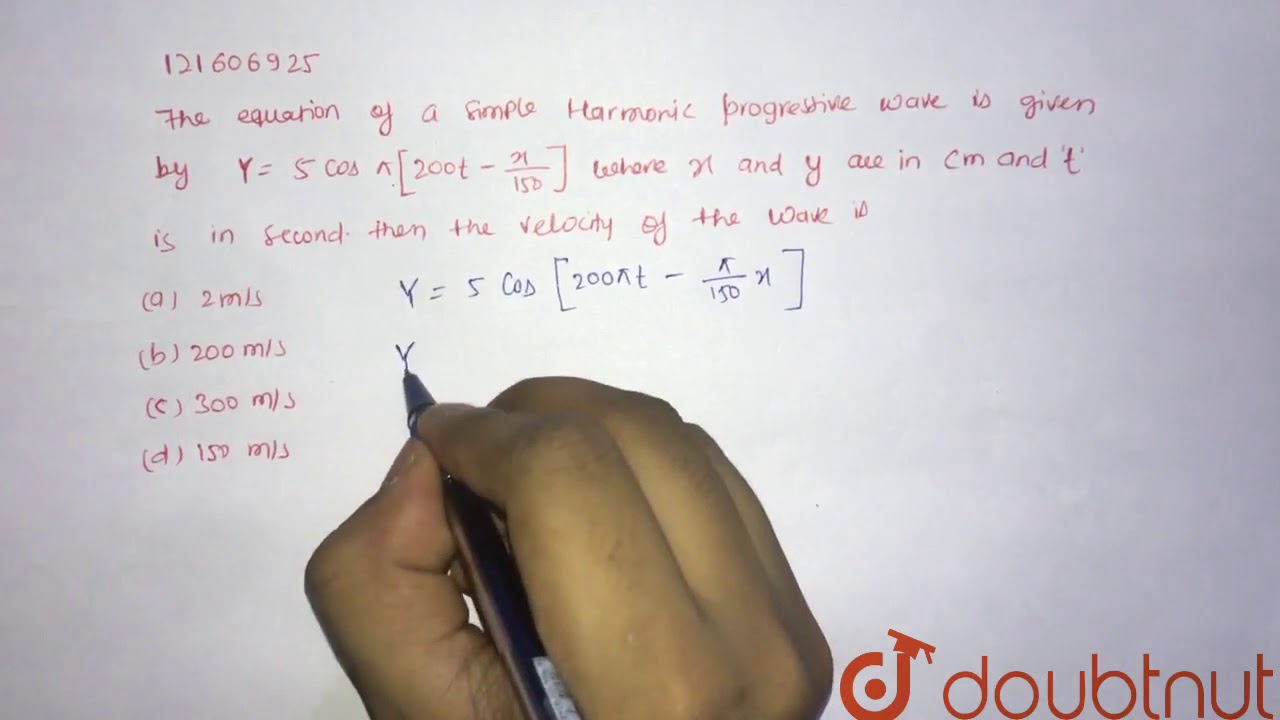 121606925
The equation of a simple Harmonic progressive wave is given
by Y = 5 cos π[200t - x/150] where x and y are in cm and 't'
is in second. then the velocity of the wave is
(a) 2 m/s
Y = 5 cos [200πt - π/150 x]
(b) 200 m/s
Y
(c) 300 m/s
(d) 150 m/s
doubtnut